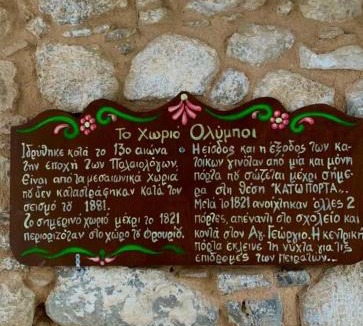 Το Χωριό Ολύμποι
Ιδρύθηκε κατά το 13ο αιώνα
την εποχή των Παλαιολόγων.
Είναι από τα μεσαιωνικά χωριά
που δεν καταστράφηκαν κατά τον
σεισμό του 1881.
Το σημερινό χωριό μέχρι το 1821
περιορίζοταν στο χώρο του Φρουρίου.
Η είσοδος και η έξοδος των κα-
τοίκων χινόταν από μία και μόνη
πόρτα που σώζεται μέχρι σήμε-
ρα στη θέση "ΚΑΤΩ ΠΟΡΤΑ...
Μετά το 1821 ανοίχτηκαν άλλες 2
πόρτες, απέναντι στο σχολείο και
κοντά στον Αγ. Γεώργιο. Η κεντρική
πόρτα έκλεινε τη νύχτα για τις
επιδρομές των πειρατών...